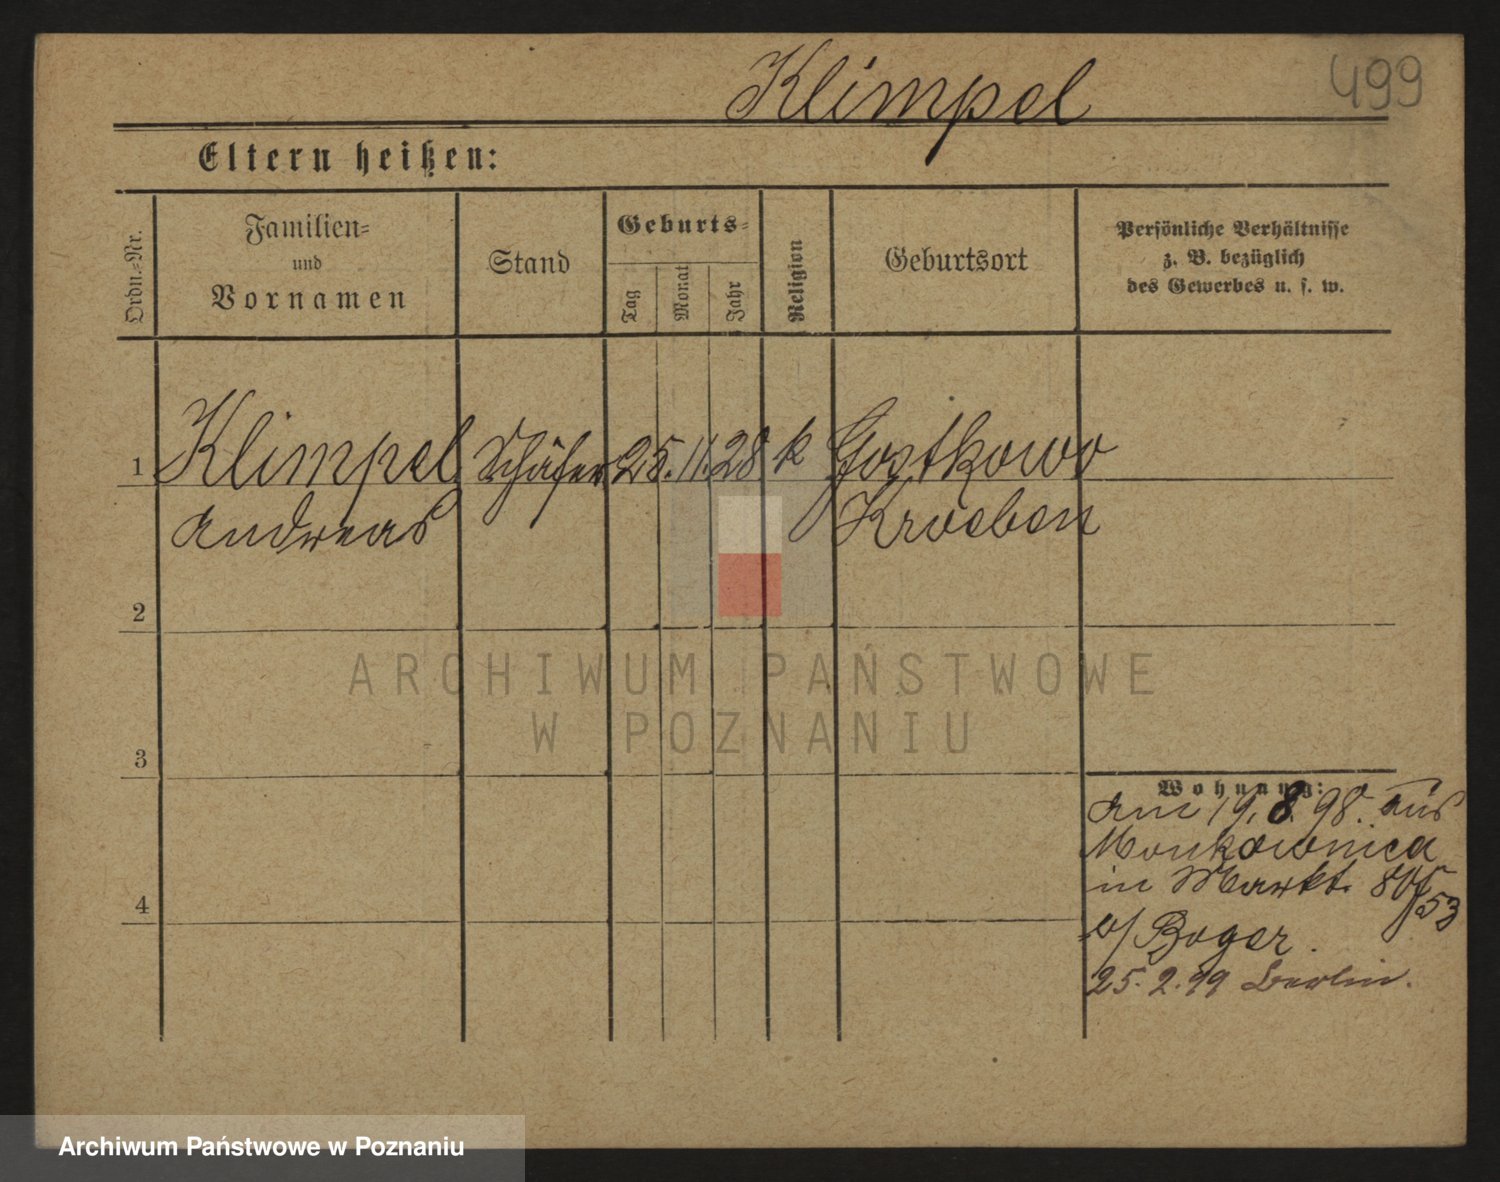 Klimpel
499
Eltern heißen:
Ordn.-Nr.
Familien-
und
Vornamen
Stand
Geburts-
Tag
Monat
Jahr
Religion
Geburtsort
Persönliche Verhältnisse
z. B. bezüglich
des Gewerbes u. s. w.
1 Klimpel Schäfer 25. 11. 28 k Gostkowo
Andreas Kroeben
2
ARCHIWUM PAŃSTWOWE
W POZNANIU
3
Wohnung:
am 19. 8. 98. aus
in Markt. 80/
53
4
b/ Boger.
25. 2. 99 Berlin.
Archiwum Państwowe w Poznaniu